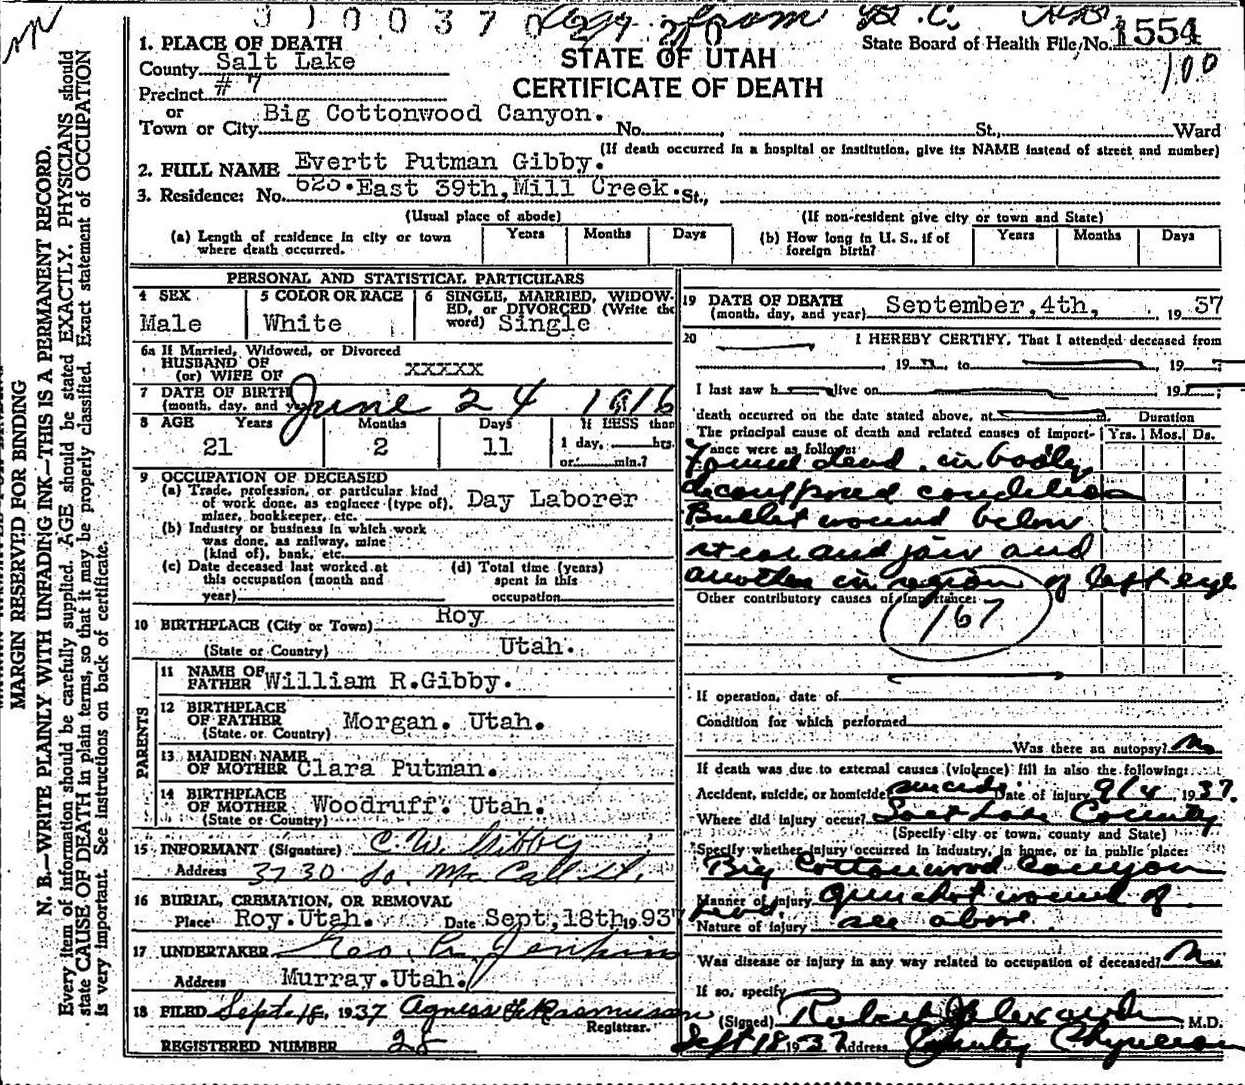 310037 from B.C.
STATE OF UTAH
CERTIFICATE OF DEATH
State Board of Health File No. 1554
100
1. PLACE OF DEATH
County Salt Lake
Precinct #7
or
Town or City Big Cottonwood Canyon. No. , St., Ward
(If death occurred in a hospital or institution, give its NAME instead of street and number)
2. FULL NAME Evertt Putman Gibby.
3. Residence: No. 625.East 39th,Mill Creek. St.,
(Usual place of abode) (If non-resident give city or town and State)
(a) Length of residence in city or town where death occurred. Years Months Days
(b) How long in U. S., if of foreign birth? Years Months Days
PERSONAL AND STATISTICAL PARTICULARS
4 SEX
Male
5 COLOR OR RACE
White
6 SINGLE, MARRIED, WIDOWED, OR DIVORCED (Write the word) Single
6a If Married, Widowed, or Divorced
HUSBAND OF
(or) WIFE OF xxxxx
7 DATE OF BIRTH
(month, day, and year) June 24 1916
8 AGE Years Months Days If LESS than
21 2 11 1 day, hrs.
or min.?
9 OCCUPATION OF DECEASED
(a) Trade, profession, or particular kind
of work done, as engineer (type of), Day Laborer
miner, bookkeeper, etc.
(b) Industry or business in which work
was done, as railway, mine
(kind of), bank, etc.
(c) Date deceased last worked at
this occupation (month and
year)
(d) Total time (years)
spent in this
occupation
10 BIRTHPLACE (City or Town) Roy
(State or Country) Utah.
PARENTS
11 NAME OF
FATHER William R.Gibby.
12 BIRTHPLACE
OF FATHER Morgan. Utah.
(State or Country)
13 MAIDEN NAME
OF MOTHER Clara Putman.
14 BIRTHPLACE
OF MOTHER Woodruff. Utah.
(State or Country)
15 INFORMANT (Signature) C. W. Gibby
Address 3730 So. Mc Call St.
16 BURIAL, CREMATION, OR REMOVAL
Place Roy.Utah. Date Sept,18th,1937
17 UNDERTAKER Geo. Jenkins
Address Murray.Utah.
18 FILED Sept 18, 1937 Agness Rasmussen
Registrar.
REGISTERED NUMBER 25
19 DATE OF DEATH
(month, day, and year) September,4th, , 1937
20 I HEREBY CERTIFY, That I attended deceased from
, 19 to , 19
I last saw h alive on , 19 ;
death occurred on the date stated above, at m. Duration
The principal cause of death and related causes of importance were as follows: Yrs. Mos. Ds.
Found dead in badly
decomposed condition
Bullet wound below
rt ear and jaw and
another in region of left eye
Other contributory causes of importance:
167
If operation, date of
Condition for which performed
Was there an autopsy? No
If death was due to external causes (violence) fill in also the following:
Accident, suicide, or homicide suicide Date of injury 9/4, 1937.
Where did injury occur? Salt Lake County
(Specify city or town, county and State)
Specify whether injury occurred in industry, in home, or in public place:
Big Cottonwood Canyon
Manner of Injury Gunshot wound of
head,
Nature of injury see above.
Was disease or injury in any way related to occupation of deceased? No
If so, specify
(Signed) Robert Alexander, M.D.
Sept 18 1937 Address County Physician
MARGIN RESERVED FOR BINDING
N. B.—WRITE PLAINLY WITH UNFADING INK—THIS IS A PERMANENT RECORD.
Every item of information should be carefully supplied. AGE should be stated EXACTLY. PHYSICIANS should
state CAUSE OF DEATH in plain terms, so that it may be properly classified. Exact statement of OCCUPATION
is very important. See instructions on back of certificate.